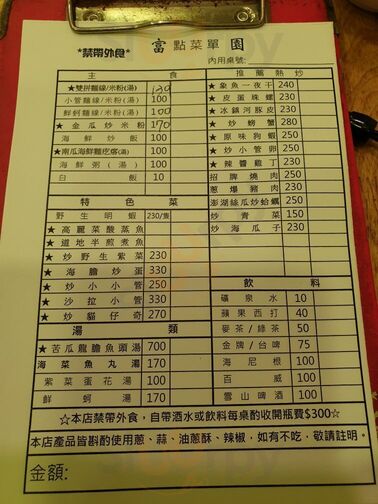 *禁帶外食*
富 點菜單 園
內用桌號:
主食
★雙拼麵線/米粉(湯) 130
小管麵線/米粉(湯) 100
鮮蚵麵線/米粉(湯) 100
★金瓜炒米粉 170
海鮮炒飯 100
★南瓜海鮮麵疙瘩(湯) 100
海鮮粥(湯) 100
白飯 10
特色菜
野生明蝦 230/隻
★高麗菜酸蒸魚
★道地半煎煮魚
★炒野生紫菜 230
★海膽炒蛋 330
★炒小小管 250
★沙拉小管 330
★炒貓仔奇 270
湯類
★苦瓜龍膽魚頭湯 700
海菜魚丸湯 170
紫菜蛋花湯 100
鮮蚵湯 170
推薦熱炒
★象魚一夜干 240
★皮蛋珠螺 230
★冰鎮河豚皮 230
★炒螃蟹 280
★原味狗蝦 250
★炒小管卵 250
★辣醬雞丁 230
招牌燒肉 230
蔥爆豬肉 230
澎湖絲瓜炒蛤蠣 250
炒青菜 150
炒海瓜子 230
飲料
礦泉水 10
蘋果西打 40
麥茶/綠茶 50
金牌/台啤 75
海尼根 100
百威 100
雪山啤酒 100
☆本店禁帶外食，自帶酒水或飲料每桌酌收開瓶費$300☆
本店產品皆斟酌使用蔥、蒜、油蔥酥、辣椒，如有不吃，敬請註明。
金額: